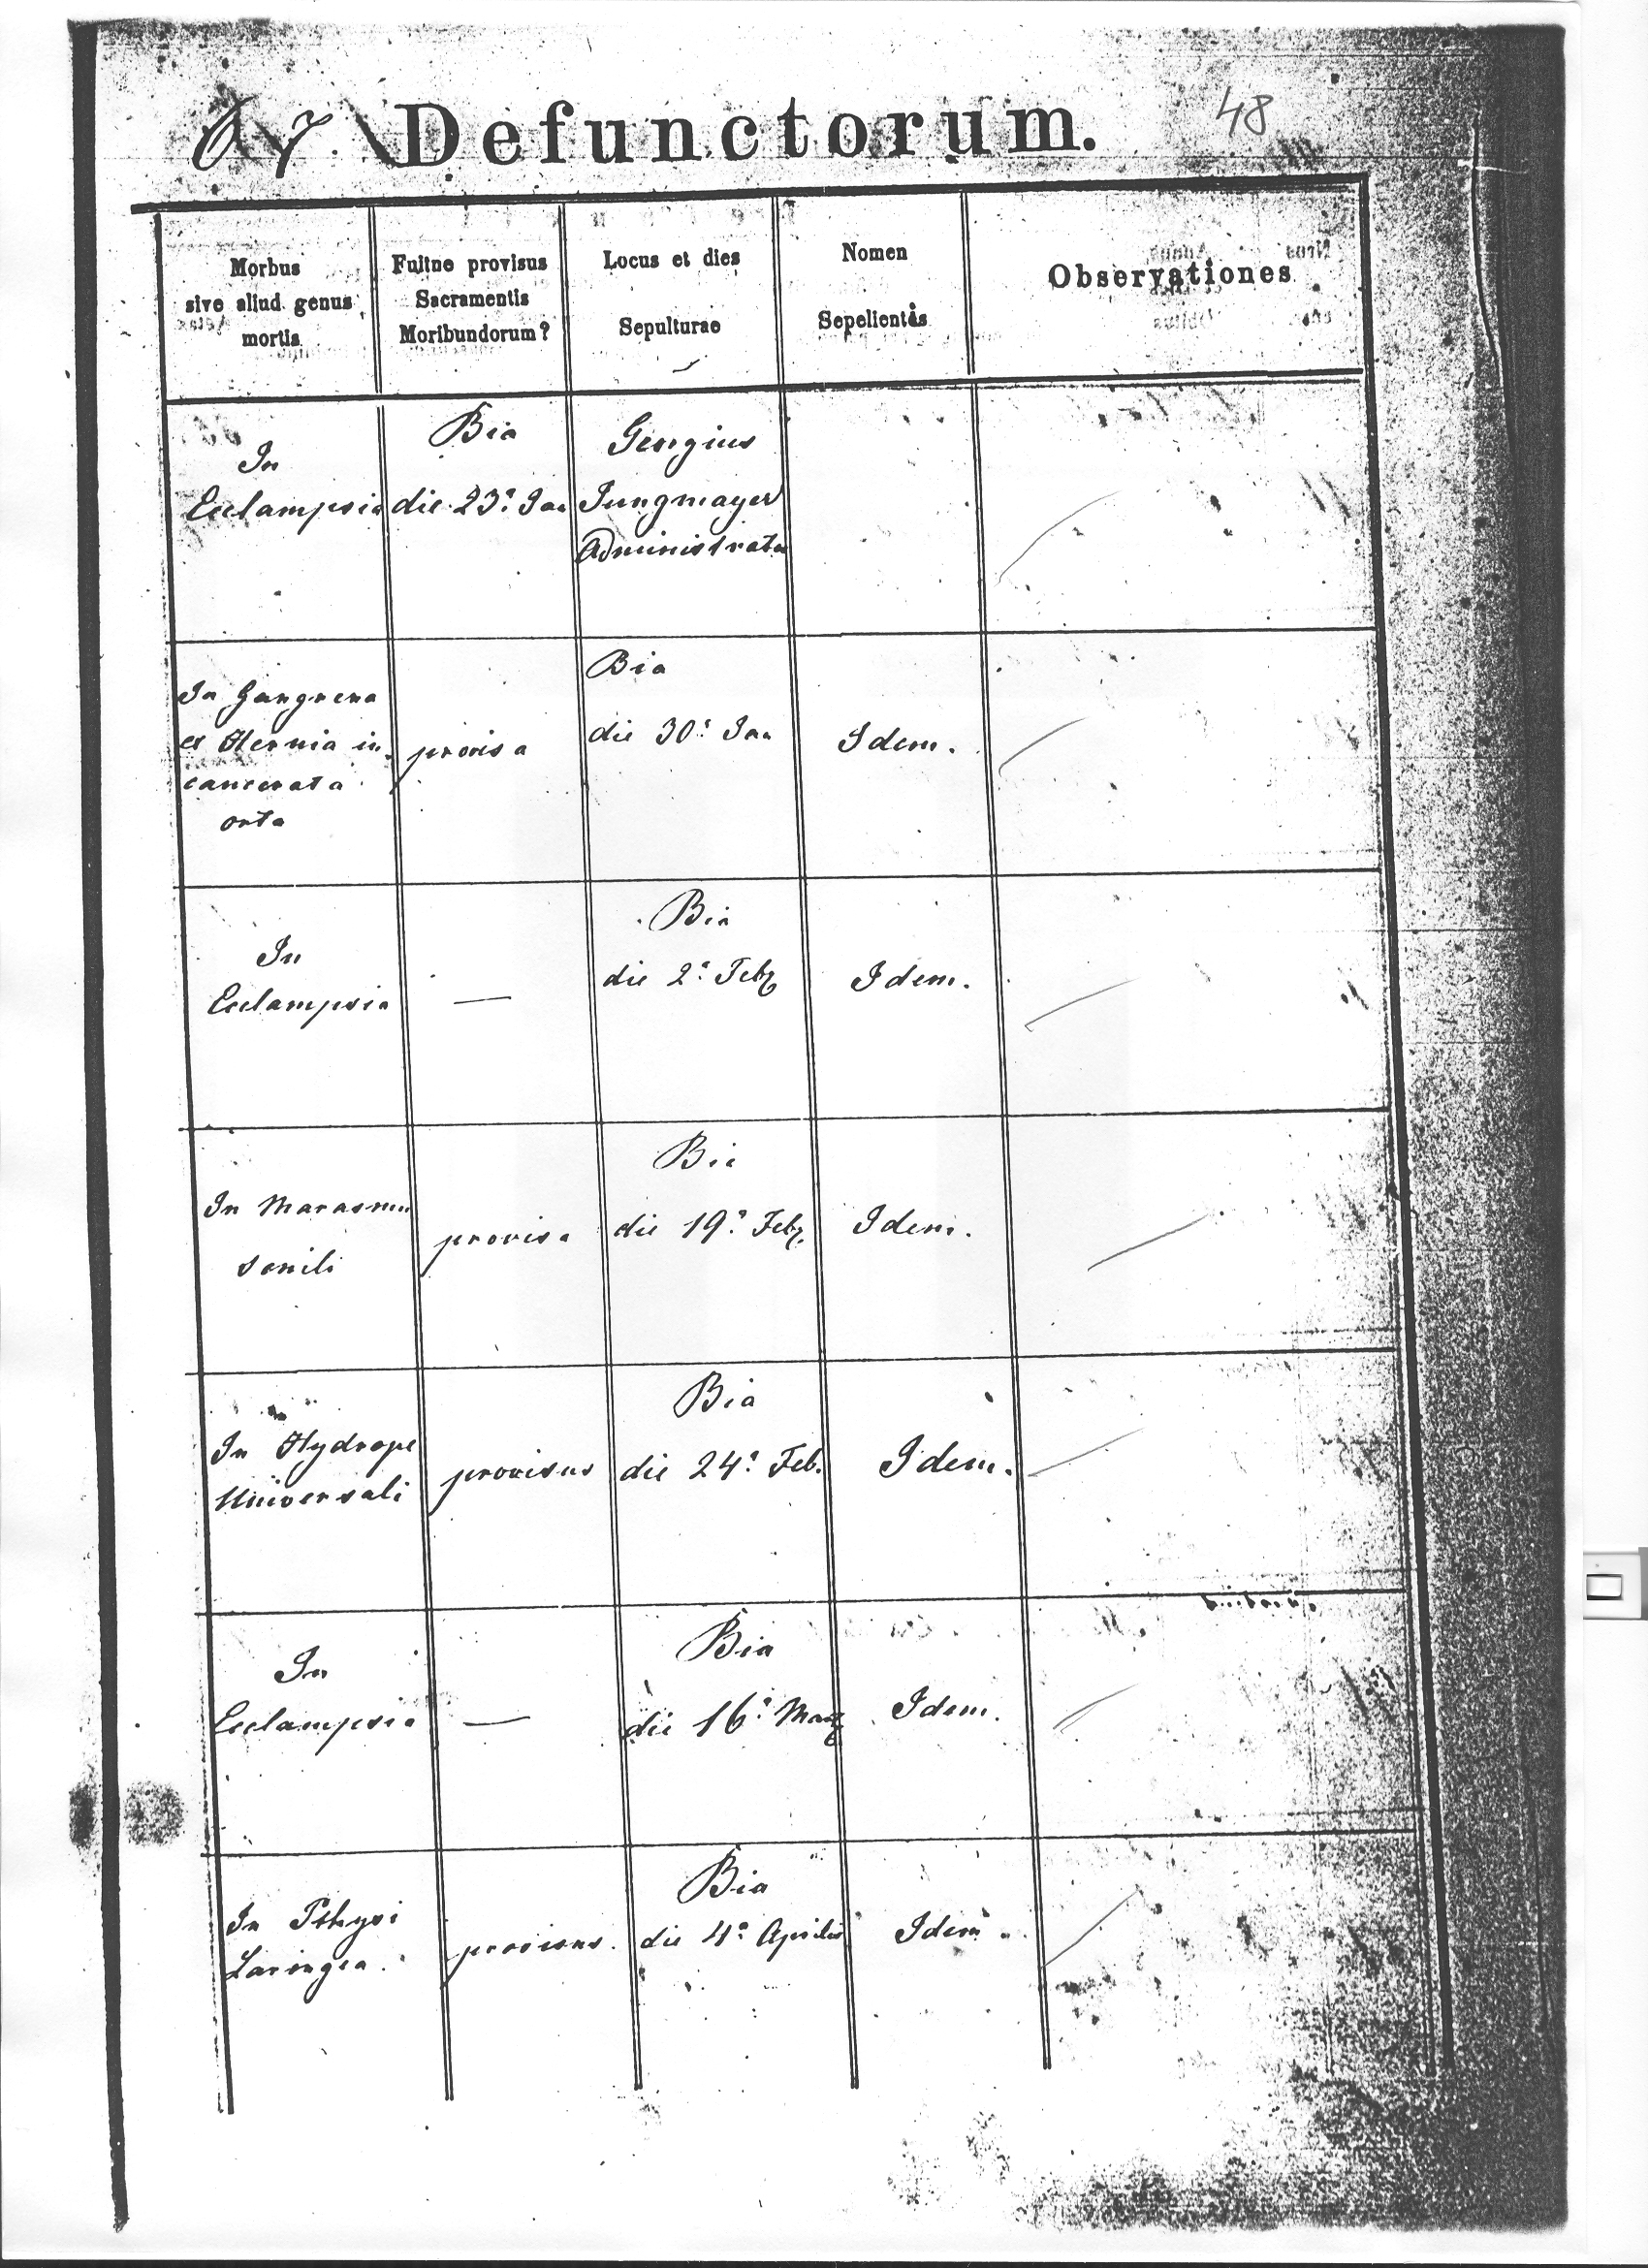 Defunctorum. 48
Morbus
sive aliud genus
mortis
Fuitne provisus
Sacramentis
Moribundorum?
Locus et dies
Sepulturae
Nomen
Sepelientis
Observationes
In
Eclampsia
Bia
die 23ª Jan
Georgius
Jungmayer
Administrator
In Gangrena
ex Hernia in
cancerata
orta
provisa
Bia
die 30ª Jan
Idem.
In
Eclampsia
—
Bia
die 2ª Feb
Idem.
In Marasmu
senili
provisa
Bia
die 19ª Feb.
Idem.
In Hydrope
Universali
provisus
Bia
die 24ª Feb.
Idem.
In
Eclampsia
—
Bia
die 16ª
Idem.
In Pthysi
Laringea.
provisus.
Bia
die 4ª Aprilis
Idem